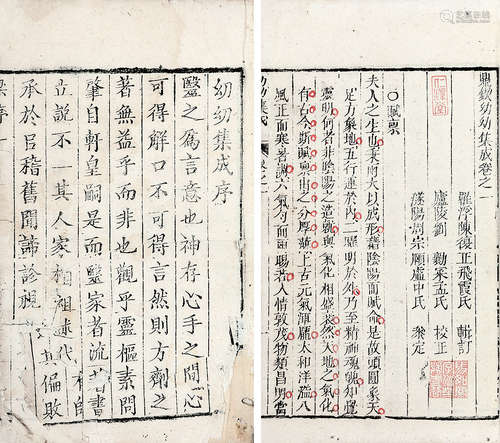 幼幼集成序
醫之爲言意也神存心手之間心
可得解口不可得言然則方劑之
著無益乎而非也觀乎靈樞素問
肇自軒皇嗣是而醫家者流著書
立說不 其人家相祖述代
承於 稽舊聞諦診視 其偏敗
鼎鋟幼幼集成卷之一
羅浮陳復正飛霞氏 輯訂
廬陵劉 勷宋孟氏 校正
遂陽周宗頤慮中氏 參定
〇賦稟
夫人之生也秉兩大以成形藉陰陽而賦命是故頭圓象天
足方象地五行運於內二曜明於外乃至精神魂魄知覺
靈明何者非陰陽之造就與氣化相盛衰然天地之氣化
有古今斯賦稟由之分厚薄上古元氣渾龐太和洋溢八
風正而寒暑調六氣勻而雨暘若人情敦茂物類昌明當
幼幼集成 卷之一